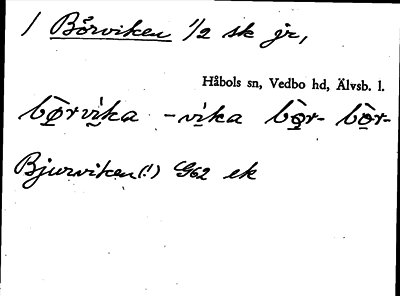 / Bôrviken 1/2 sk jr,
Håbols sn, Vedbo hd, Älvsb. l.
bò̤rvi̤ka -vi̤ka bò̤r- bò̤r-
Bjurviken(!) G62 ek